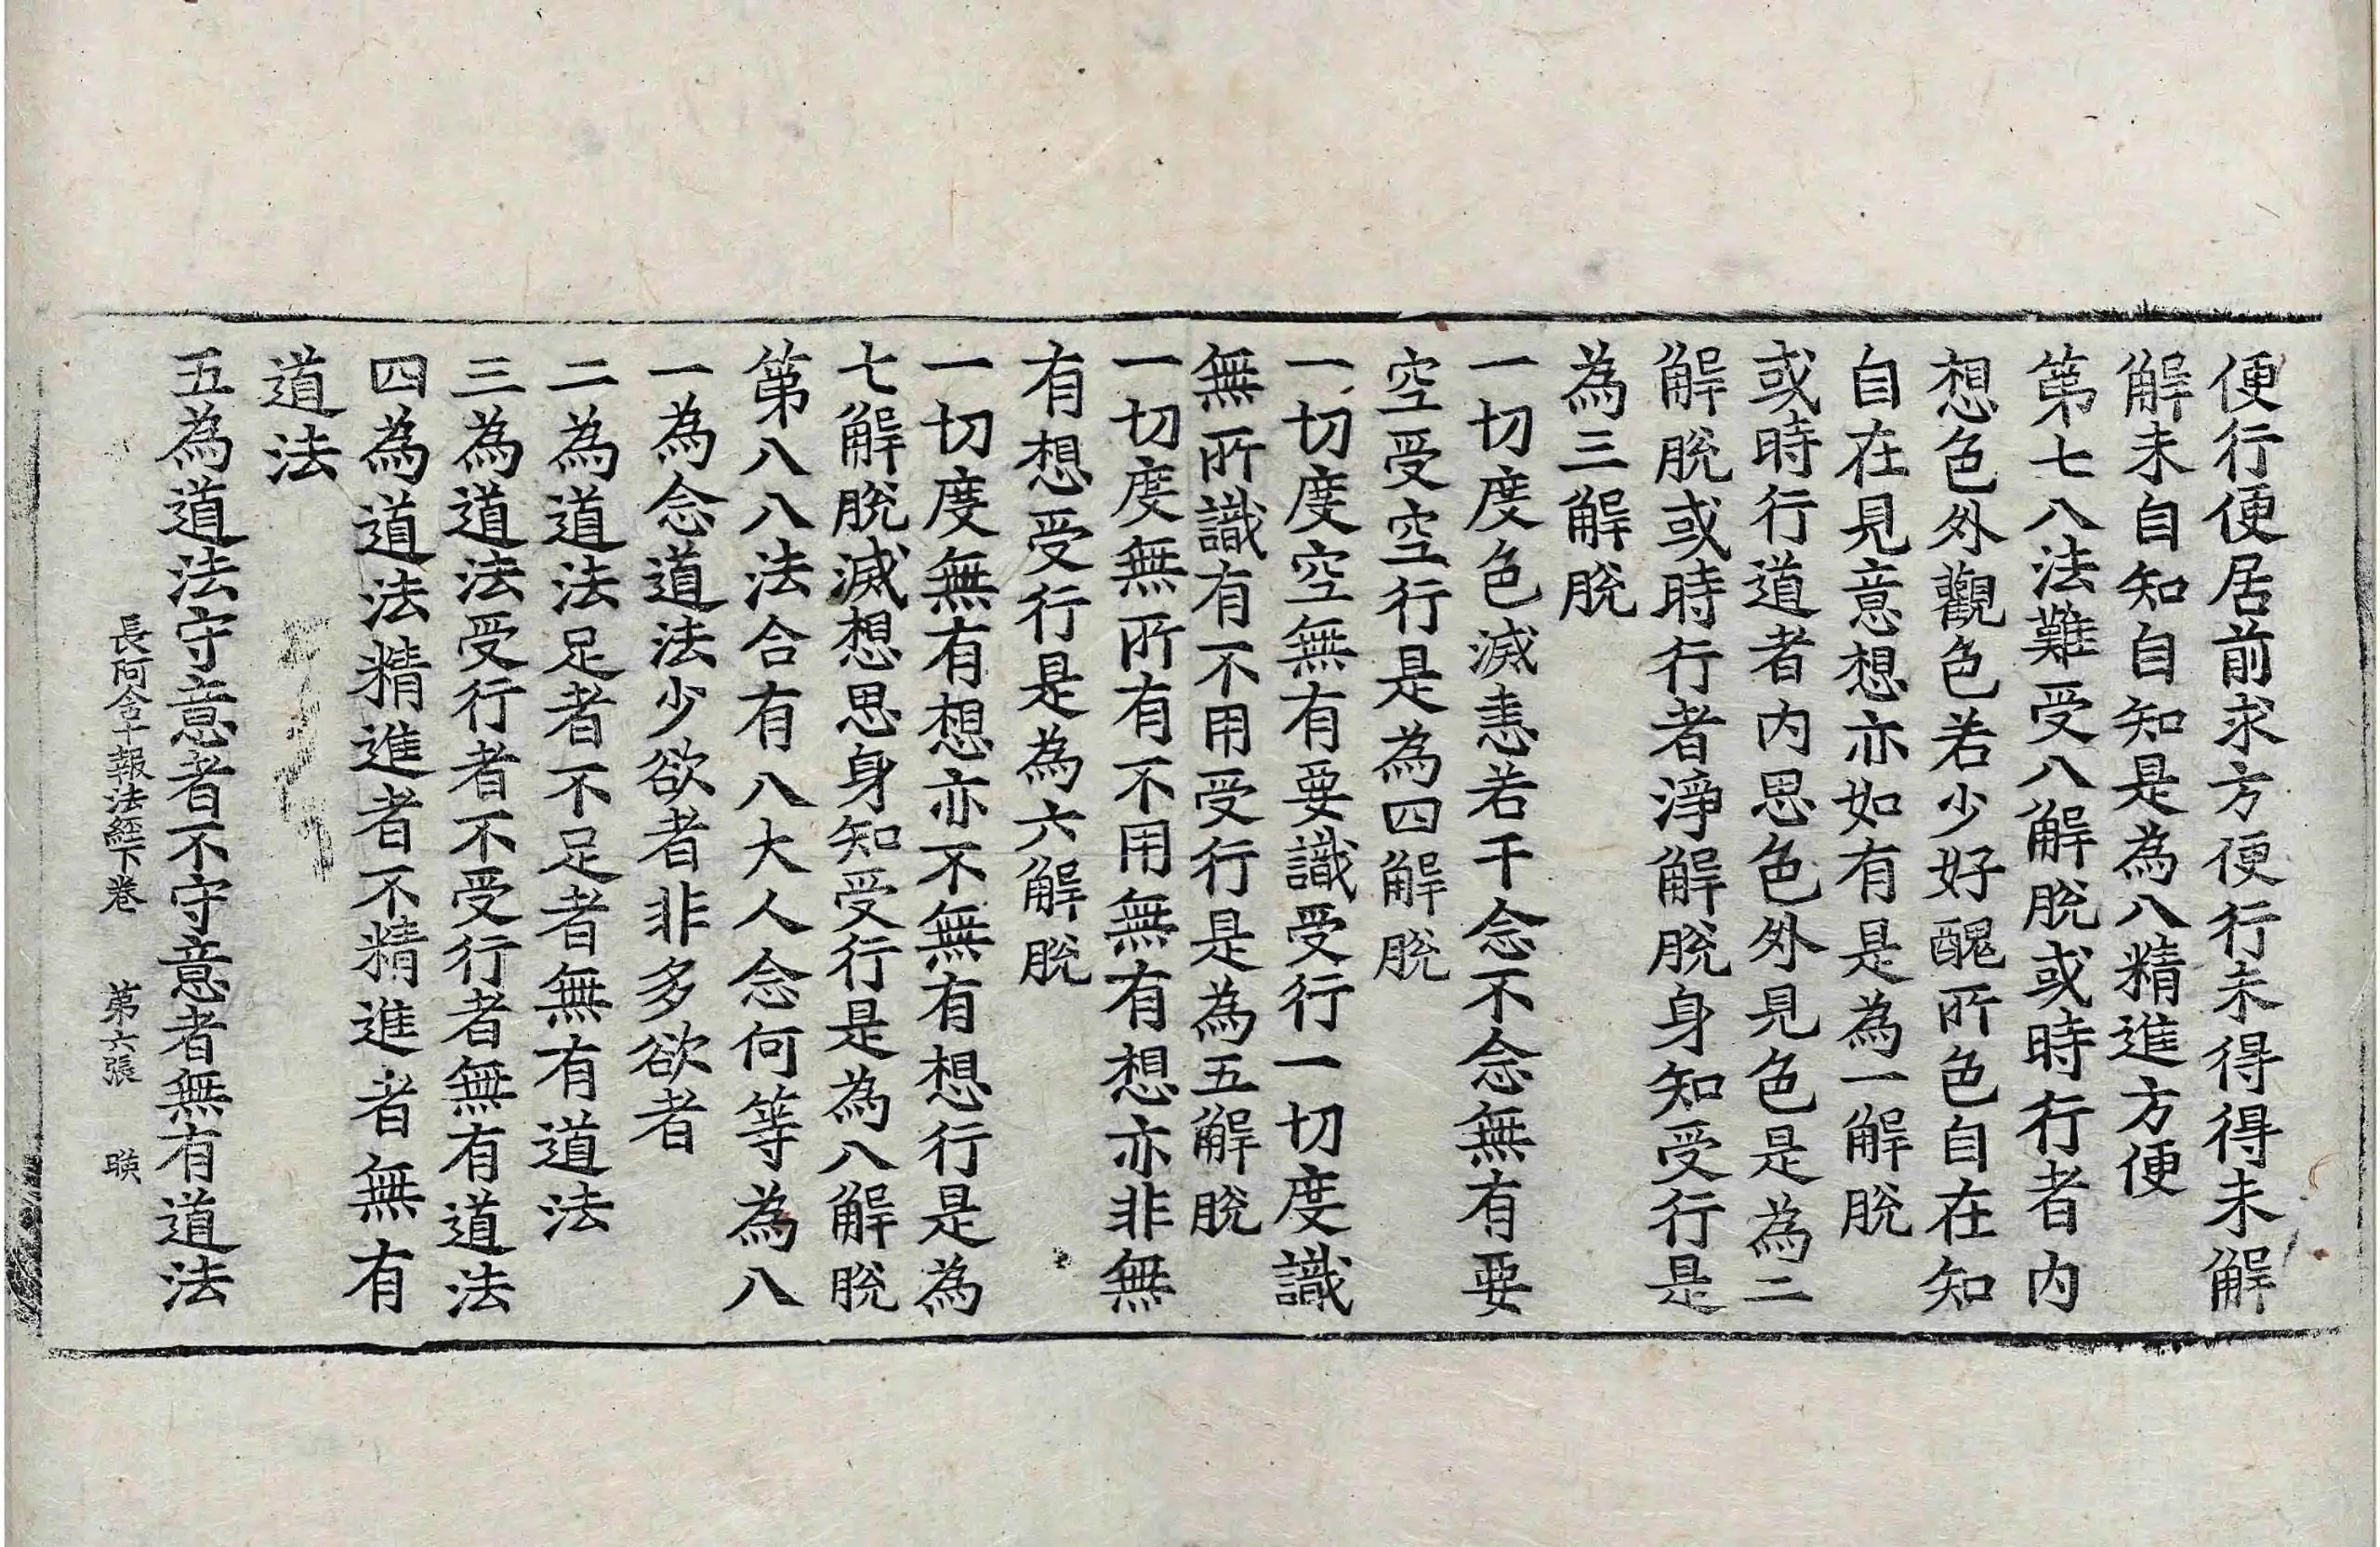 便行便居前求方便行未得得未解
解未自知自知是為八精進方便
第七八法難受八解脫或時行者內
想色外觀色若少好醜所色自在知
自在見意想亦如有是為一解脫
或時行道者內思色外見色是為二
解脫或時行者淨解脫身知受行是
為三解脫
一切度色滅恚若干念不念無有要
空受空行是為四解脫
一切度空無有要識受行一切度識
無所識有不用受行是為五解脫
一切度無所有不用無有想亦非無
有想受行是為六解脫
一切度無有想亦不無有想行是為
七解脫滅想思身知受行是為八解脫
第八八法合有八大人念何等為八
一為念道法少欲者非多欲者
二為道法足者不足者無有道法
三為道法受行者不受行者無有道法
四為道法精進者不精進者無有
道法
五為道法守意者不守意者無有道法
長阿含十報法經下卷 第六張 暎